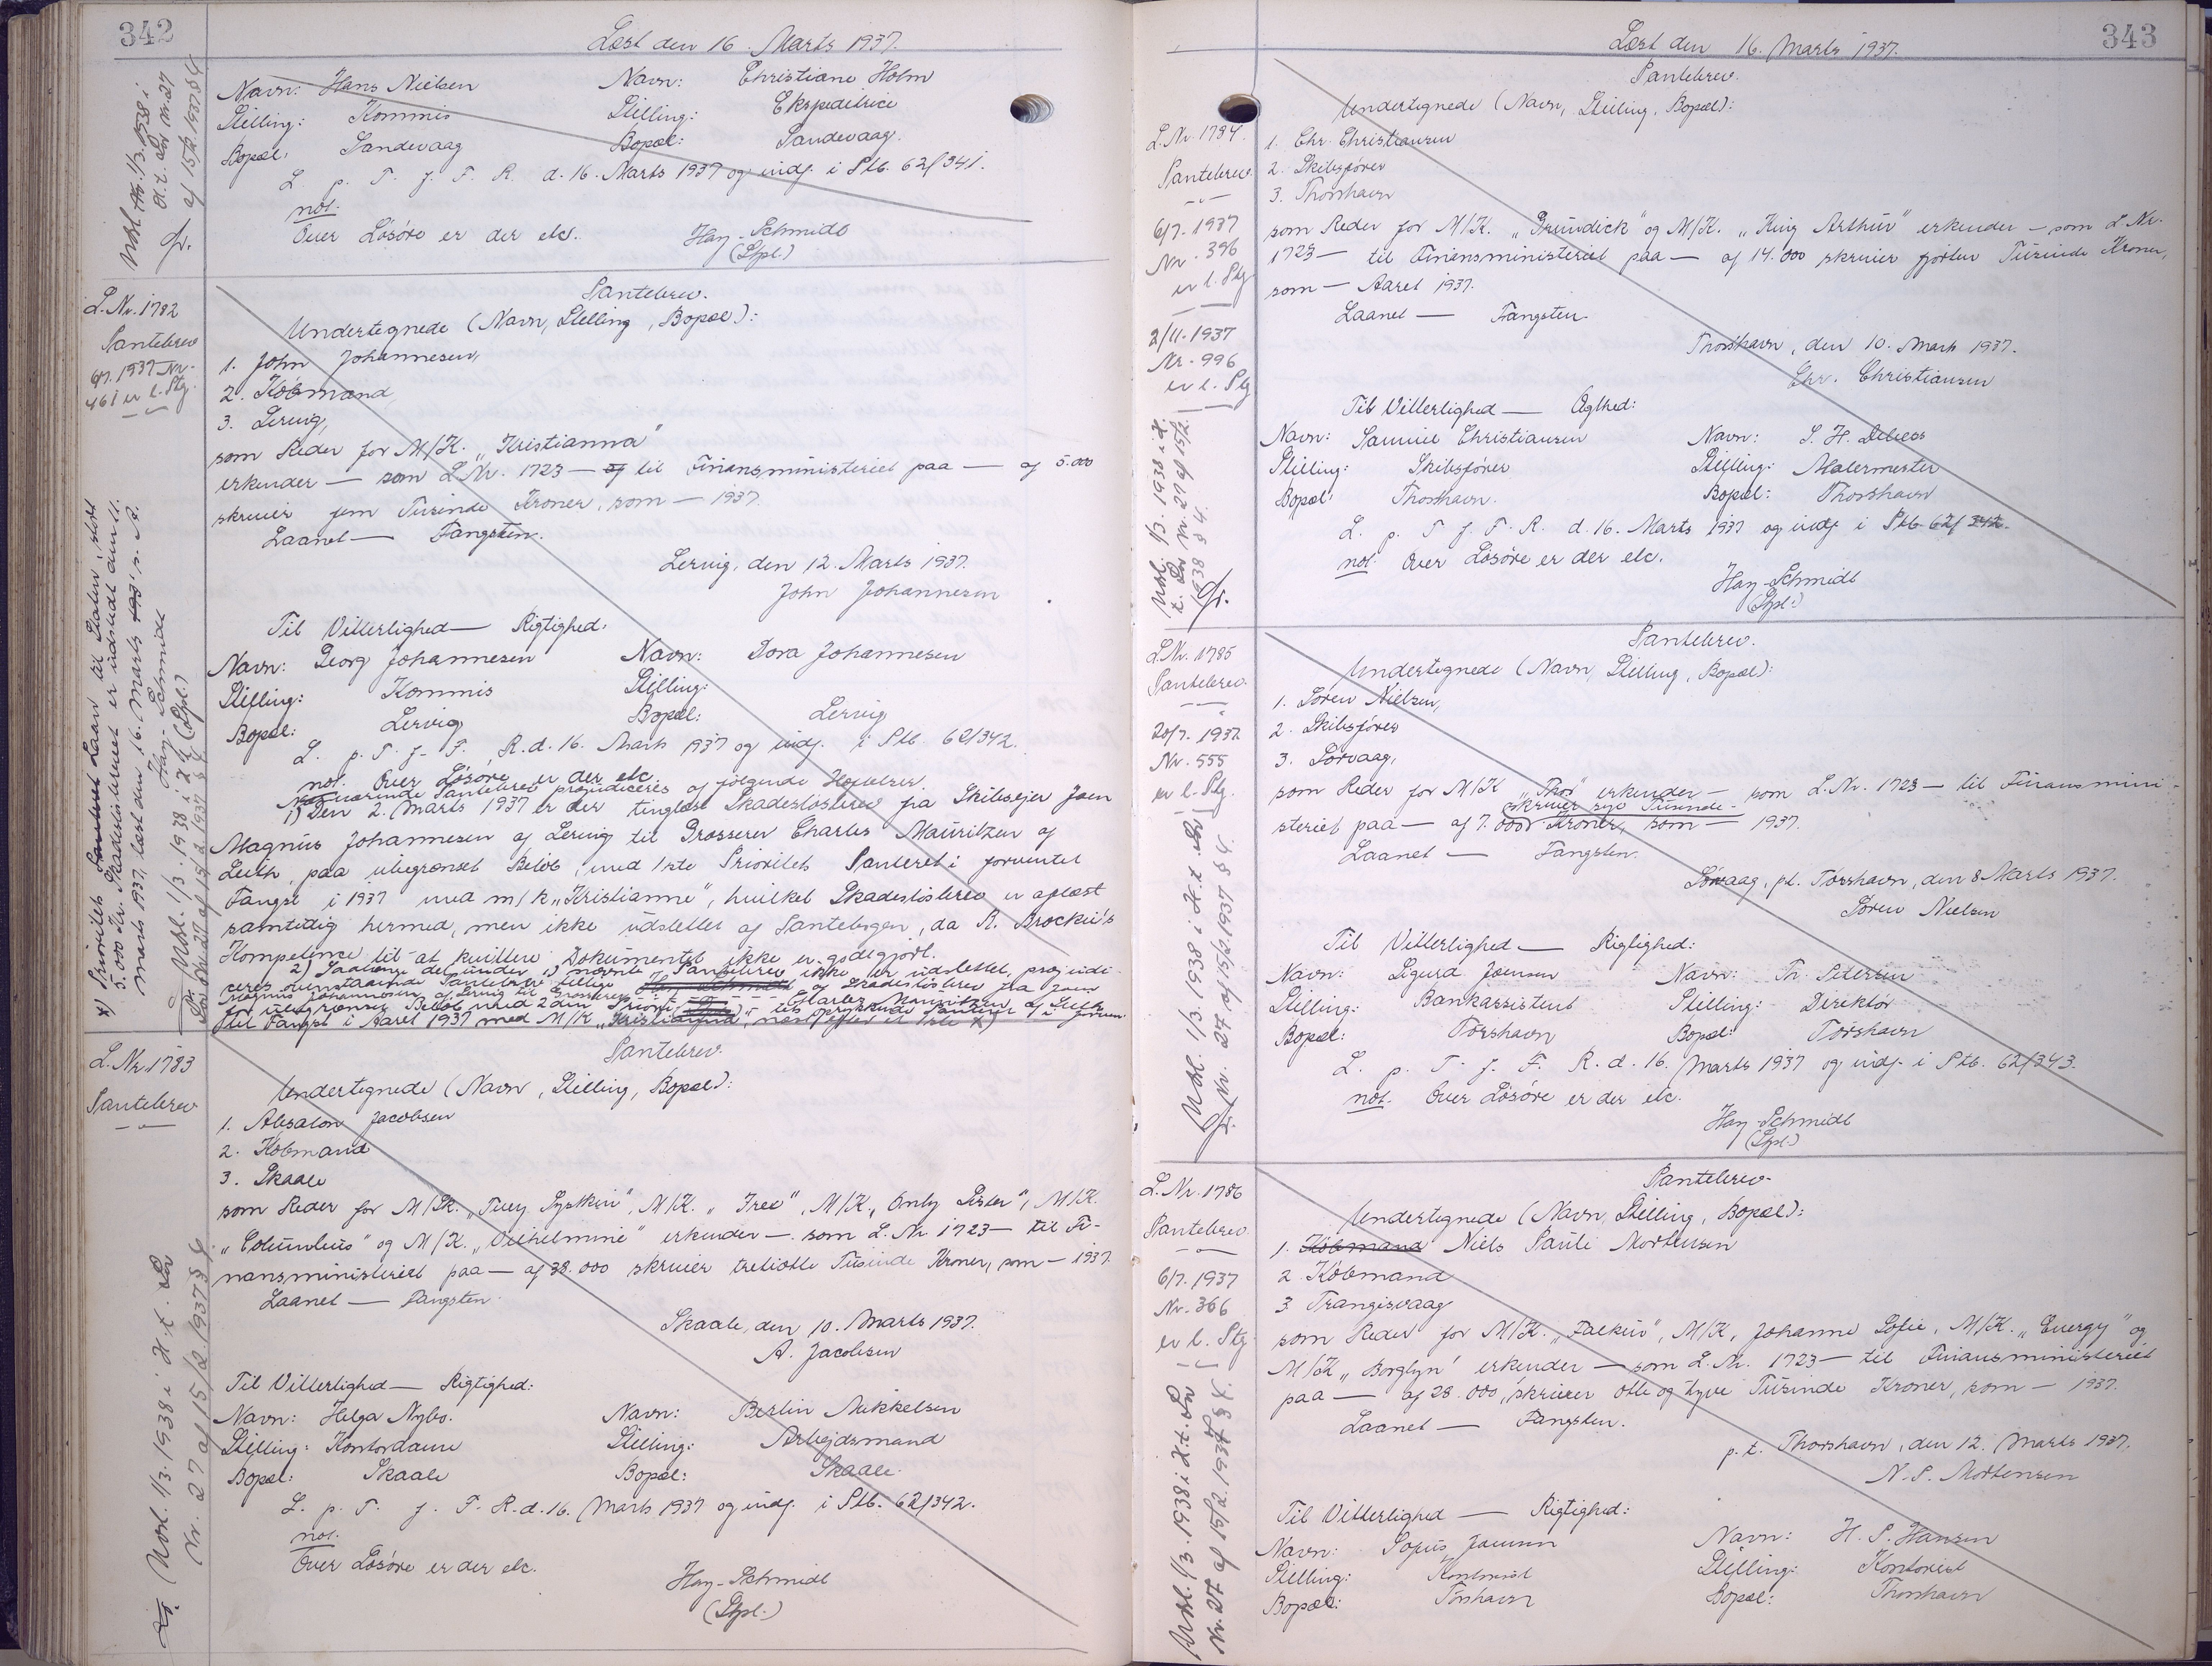 342
Læst den 16. Marts 1937.
Navn: Hans Nielsen Navn: Christiane Holm
Stilling: Kommis Stilling: Ekspeditrice
Bopæl: Sandevaag Bopæl: Sandevaag.
L. p. T. f. F. R. d. 16. Marts 1937 og indf. i Ptb. 62/341.
not.
Over Lösöre er der etc. Hay-Schmidt
(Stpl.)
Udsl. 1/3. 1938 i
H. t. Lov Nr. 27
af 15/2. 1937 § 4
L. Nr. 1782
Pantebrev
6/7. 1937 Nr.
461 er l. Ptg.
Pantebrev.
Undertegnede (Navn, Stilling, Bopæl):
1. John Johannesen,
2. Köbmand
3. Lervig,
som Reder for M/K. „Kristianna"
erkender — som L. Nr. 1723 — af til Finansministeriet paa — af 5.000
skriver fem Tusinde Kroner, som — 1937.
Laanet — Fangsten.
Lervig, den 12. Marts 1937.
John Johannesen
Til Vitterlighed — Rigtighed:
Navn: Georg Johannesen Navn: Dora Johannesen
Stilling: Kommis Stilling:
Bopæl: Lervig Bopæl: Lervig
L. p. T. f. F. R. d. 16. Marts 1937 og indf. i Ptb. 62/342.
not. Over Lösöre er der etc.
Nærværende Pantebrev præjudiceres af følgende Hæftelser.
1) Den 2. Marts 1937 er der tinglæst Skadesløsbrev fra Skibsejer Joen
Magnus Johannesen af Lervig til Grosserer Charles Mauritzen af
Leith, paa ubegrænset Beløb, med 1ste Prioritets Panteret i forventet
Fangst i 1937 med m/k „Kristianna", hvilket Skadesløsbrev er aflæst
samtidig hermed, men ikke udslettet af Pantebogen, da R. Brockie's
Kompetence til at kvittere Dokumentet ikke er godtgjort.
2) Saalænge det under 1) nævnte Pantebrev ikke er udslettet, præjudi-
ceres ovenstaaende Pantebrev tillige Hay-Schmidt af Skadesløsbrev fra Joen
Magnus Johannesen af Lervig til Grosserer Charles Mauritzen af Leith
for ubegrænset Beløb med 2den Prioritets oprykkende Panteret i forven-
tet Fangst i Aaret 1937 med M/K „Kristianna", næst efter et 1ste x)
x) Prioritets Panteret Laan til Staten, stort
5.000 Kr. Skadesløsbrevet er udstedt den 11.
Marts 1937, læst den 16. Marts 193 n. A.
Hay-Schmidt
(Stpl.)
Udsl. 1/3. 1938 i H. t.
Lov Nr. 27 af 15/2 1937 § 4
L. Nr. 1783
Pantebrev
Pantebrev.
Undertegnede (Navn, Stilling, Bopæl):
1. Absalon Jacobsen
2. Köbmand
3. Skaale
som Reder for M/Sk. „Fuey Systkin", M/K. „Tree", M/K. „Only Sister", M/K.
„Columbus" og M/K. „Vilhelmine" erkender — som L. Nr 1723 — til Fi-
nansministeriet paa — af 38.000 skriver tretiotte Tusinde Kroner, som — 1937.
Laanet — Fangsten.
Skaale, den 10. Marts 1937.
A. Jacobsen
Til Vitterlighed — Rigtighed:
Navn: Helga Nybo. Navn: Berlin Mikkelsen
Stilling: Kontordame Stilling: Arbejdsmand
Bopæl: Skaale Bopæl: Skaale.
L. p. T. f. F. R. d. 16. Marts 1937 og indf. i Ptb. 62/342.
not.
Over Lösöre er der etc.
Hay-Schmidt
(Stpl.)
Udsl. 1/3. 1938 i H. t. Lov
Nr. 27 af 15/2. 1937 § 4.
343
Læst den 16. Marts 1937.
L. Nr. 1784.
Pantebrev.
6/7. 1937
Nr. 396
er l. Ptg
2/11. 1937
Nr. 996
er l. Ptg
Udsl. 1/3. 1938 i H.
t. Lov Nr. 27 af 15/2.
1938 § 4.
Pantebrev.
Undertegnede (Navn, Stilling, Bopæl):
1. Chr. Christiansen
2. Skibsfører
3. Thorshavn
som Reder for M/K. „Brundick" og M/K. „King Arthur" erkender — som L. Nr.
1723 — til Finansministeriet paa — af 14.000 skriver fjorten Tusinde Kroner,
som — Aaret 1937.
Laanet — Fangsten.
Thorshavn, den 10. Marts 1937.
Chr. Christiansen
Til Vitterlighed — Ægthed:
Navn: Samuel Christiansen Navn: S. H. Debess
Stilling: Skibsfører Stilling: Malermester
Bopæl: Thorshavn. Bopæl: Thorshavn
L. p. T f. F. R. d. 16. Marts 1937 og indf. i Ptb. 62/342.
not. Over Lösöre er der etc.
Hay-Schmidt
(Stpl.)
L. Nr. 1785
Pantebrev.
20/7. 1937
Nr. 555
er l. Ptg.
Udsl. 1/3. 1938 i H. t. Lov
Nr. 27 af 15/2. 1937 § 4.
Pantebrev.
Undertegnede (Navn, Stilling, Bopæl):
1. Sören Nielsen,
2. Skibsfører
3. Sörvaag,
som Reder for M/K „Thor" erkender — som L. Nr. 1723 — til Finansmini-
skriver syv Tusinde
steriet paa — af 7.000 Kroner, som — 1937.
Laanet — Fangsten.
Sörvaag, pt. Tórshavn, den 8 Marts 1937.
Sören Nielsen
Til Vitterlighed — Rigtighed:
Navn: Sigurd Joensen Navn: Th. Petersen
Stilling: Bankassistent Stilling: Direktør
Bopæl: Tórshavn Bopæl: Tórshavn
L. p. T. f. F. R. d. 16. Marts 1937 og indf. i Ptb. 62/343.
not. Over Lösöre er der etc.
Hay-Schmidt
(Stpl.)
L. Nr. 1786
Pantebrev.
6/7. 1937
Nr. 366
er l. Ptg
Udsl. 1/3. 1938 i H. t. Lov
Nr. 27 af 15/2. 1937 § 4.
Pantebrev.
Undertegnede (Navn, Stilling, Bopæl):
1. Köbmand Niels Pauli Mortensen
2. Köbmand
3. Trangisvaag
som Reder for M/K. „Falkur", M/K, Johanne Sofie, M/K. „Energy" og
M/K „Borglyn" erkender — som L. Nr. 1723 — til Finansministeriet
paa — af 28.000, skriver otte og tyve Tusinde Kroner, som — 1937.
Laanet — Fangsten.
p. t. Thorshavn, den 12. Marts 1937.
N. P. Mortensen
Til Vitterlighed — Rigtighed:
Navn: Sofus Joensen Navn: H. P. Hansen
Stilling: Kontorist Stilling: Kontorist
Bopæl: Tórshavn Bopæl: Thorshavn